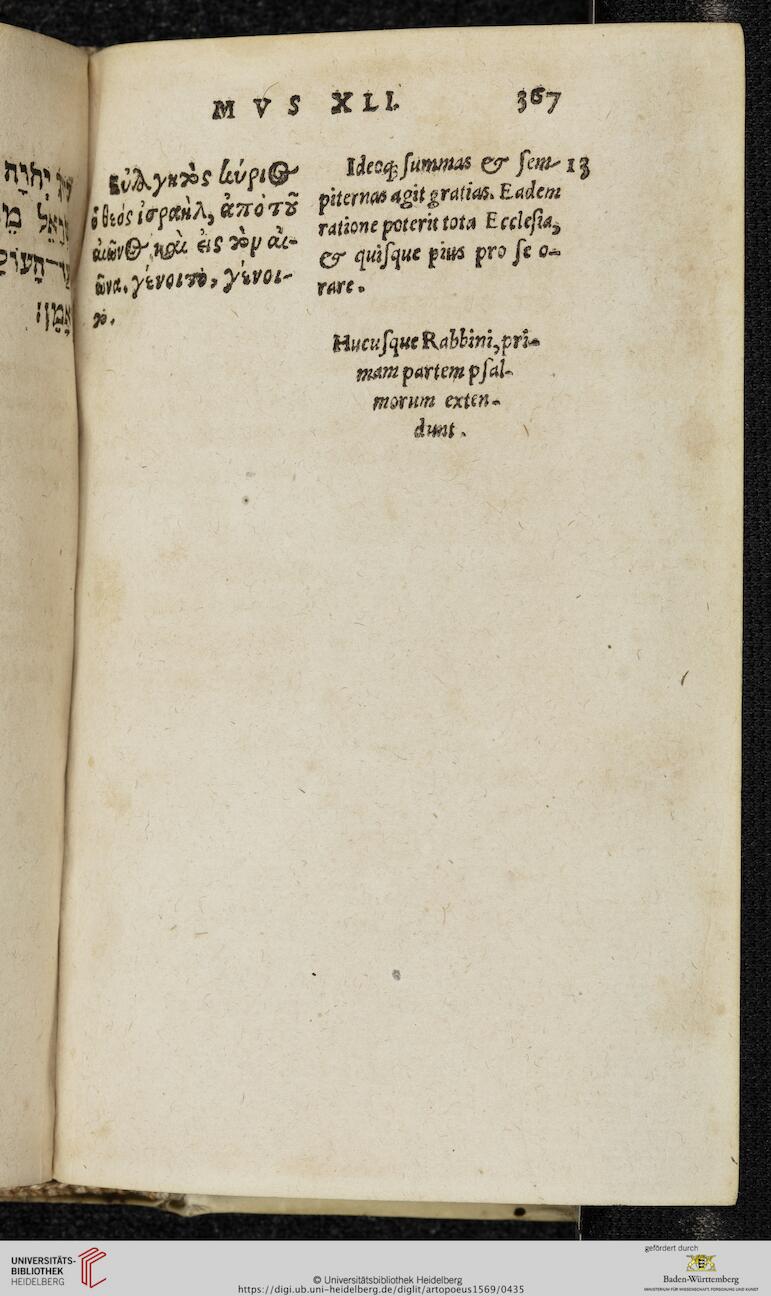 MVS XLI. 367
Εὐλογητὸς κύριος
ὁ θεός ἰσραὴλ, ἀπὸ τοῦ
αἰῶνος καὶ εἰς τὸν αἰ-
ῶνα. γένοιτο, γένοι-
το.
Ideoq; summas & sem- 13
piternas agit gratias. Eadem
ratione poterit tota Ecclesia,
& quisque pius pro se o-
rare.
Hucusque Rabbini, pri-
mam partem psal-
morum exten-
dunt.
UNIVERSITÄTS-
BIBLIOTHEK
HEIDELBERG
© Universitätsbibliothek Heidelberg
https://digi.ub.uni-heidelberg.de/diglit/artopoeus1569/0435
gefördert durch
Baden-Württemberg
MINISTERIUM FÜR WISSENSCHAFT, FORSCHUNG UND KUNST